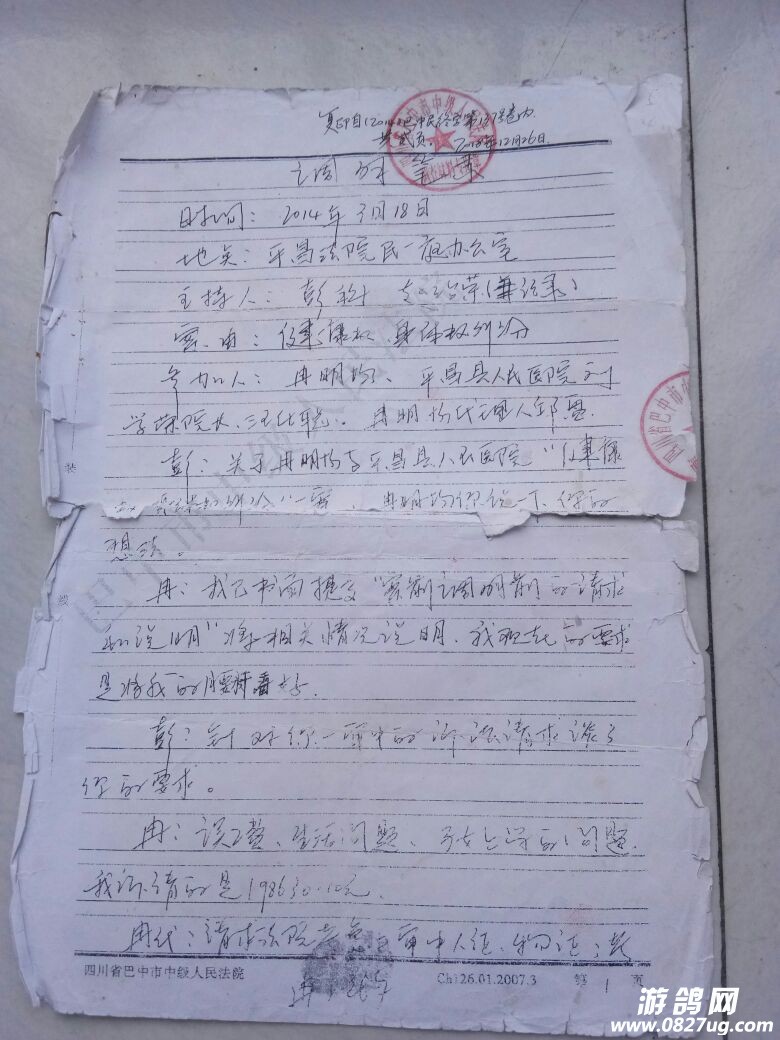 复印自(2014)巴中民终字第137号卷内
共贰页。2018年12月26日
调解笔录
时间：2014年3月18日
地点：平昌法院民一庭办公室
主持人：彭科
案由：健康权、身体权纠纷
参加人：冉明均、平昌县人民医院刘
彭：关于冉明均与平昌县人民医院“健康
纠纷”一案，冉明均你说一下你的
想法。
冉：我已书面提交“案前调解前的请求
和说明”将相关情况说明，我现在的要求
是将我的腰杆看好。
彭：针对你一审中的诉讼请求谈谈
你的要求。
冉：误工费、生活问题、子女上学的问题，
我诉请的是198630.10元。
冉代：请求法院
审中人证、物证
装
线
四川省巴中市中级人民法院
Ch126.01.2007.3
第 1 页
游鸽网
www.0827ug.com